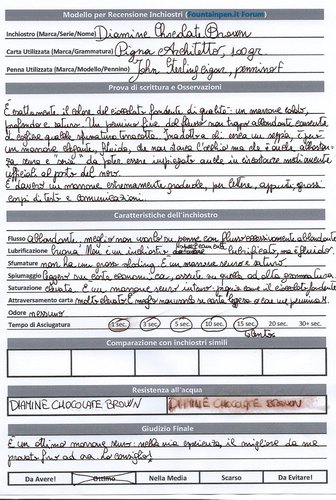 Modello per Recensione Inchiostri (Fountainpen.it Forum)
Inchiostro (Marca/Serie/Nome) Diamine Chocolate Brown
Carta Utilizzata (Marca/Grammatura) Pigna Architetto, 100gr
Penna Utilizzata (Marca/Modello/Pennino) John Sterling, pennino f
Prova di scrittura e Osservazioni
È esattamente il colore del cioccolato fondente di qualità - un marrone caldo,
profondo e saturo. Un pennino fine dal flusso non troppo abbondante consente
di cogliere qualche sfumatura
un marrone elegante, fluido, che non stanca l'occhio ma che è anche abbastan-
za serio e "nero" da poter essere impiegato anche in circostanze moderatamente
ufficiali al posto del nero.
È davvero un marrone estremamente gradevole, per lettere, appunti, grossi
corpi di testo e comunicazioni.
Caratteristiche dell'inchiostro
Flusso Abbondante, meglio non usarlo su penne con flusso eccessivamente abbondante
Lubrificazione buona. Non è un inchiostro lubrificato, ma è fluido.
Sfumature non ha un grosso shading. È un marrone scuro e saturo
Spiumaggio leggero su carta economica, assente su quella ad alta grammatura
Saturazione elevata. È un marrone scuro intenso, proprio come il cioccolato fondente
Attraversamento carta molto elevato. È meglio non usarlo su carta leggera o con un pennino M.
Odore nessuno
Tempo di Asciugatura 1 sec. 3 sec. 5 sec. 10 sec. 15 sec. 20 sec. 30+ sec.
Comparazione con inchiostri simili
Resistenza all'acqua
DIAMINE CHOCOLATE BROWN DIAMINE CHOCOLATE BROWN
Giudizio Finale
È un ottimo marrone scuro: nella mia esperienza, il migliore da me
provato fino ad ora. Lo consiglio!
Da Avere! Ottimo Nella Media Scarso Da Evitare!